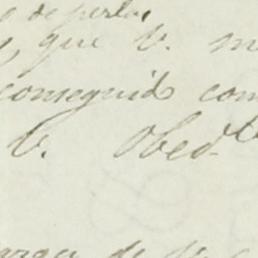 de perla
que V. m
conseguido com
V. Obed.te
de V.